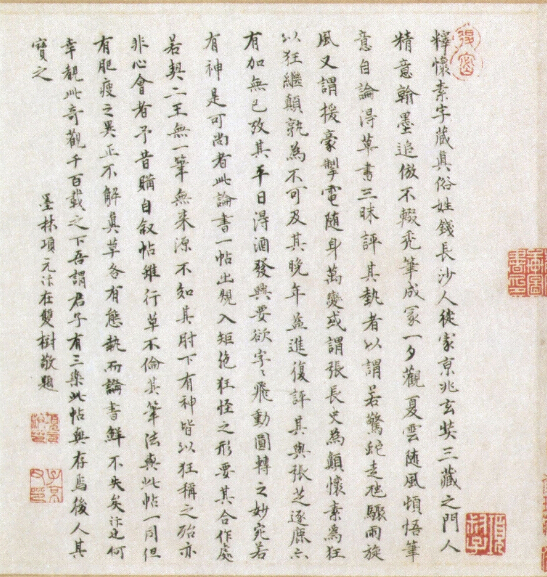 釋懷素字藏真俗姓錢長沙人徙家京兆玄奘三藏之門人
精意翰墨追倣不輟禿筆成冢一夕觀夏雲隨風頓悟筆
意自論得草書三昧評其執者以謂若驚蛇走虺驟雨旋
風又謂援豪掣電隨身萬變或謂張長史為顛懷素為狂
以狂繼顛孰為不可及其晚年益進復評其與張芝逐鹿亦
有加無已攷其平日得酒發興要欲字字飛動圓轉之妙宛若
有神是可尚者此論書一帖出規入矩絕狂怪之形要其合作處
若契二王無一筆無来源不知其肘下有神皆以狂稱之殆亦
非心會者予昔購自叙帖雖行草不倫其筆法與此帖一同但
有肥瘦之異正不解真草各有態執而論書鮮不失矣汴也何
幸觀此奇觀千百載之下吾謂君子有三樂此帖與存焉後人其
寶之
墨林項元汴在雙樹敬題